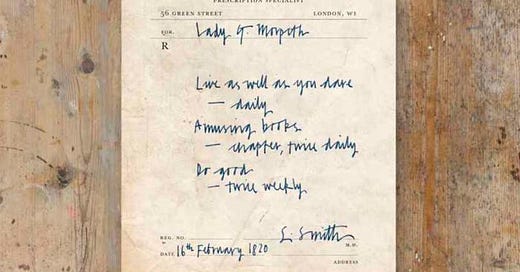 PRESCRIPTION SPECIALIST
56 GREEN STREET LONDON, W1
FOR. Lady G. Morpeth
R
Live as well as you dare
— daily
Amusing books
— chapter, twice daily
Do good
— twice weekly
REG. NO. S. Smith M.D.
DATE 16th February 1820
ADDRESS